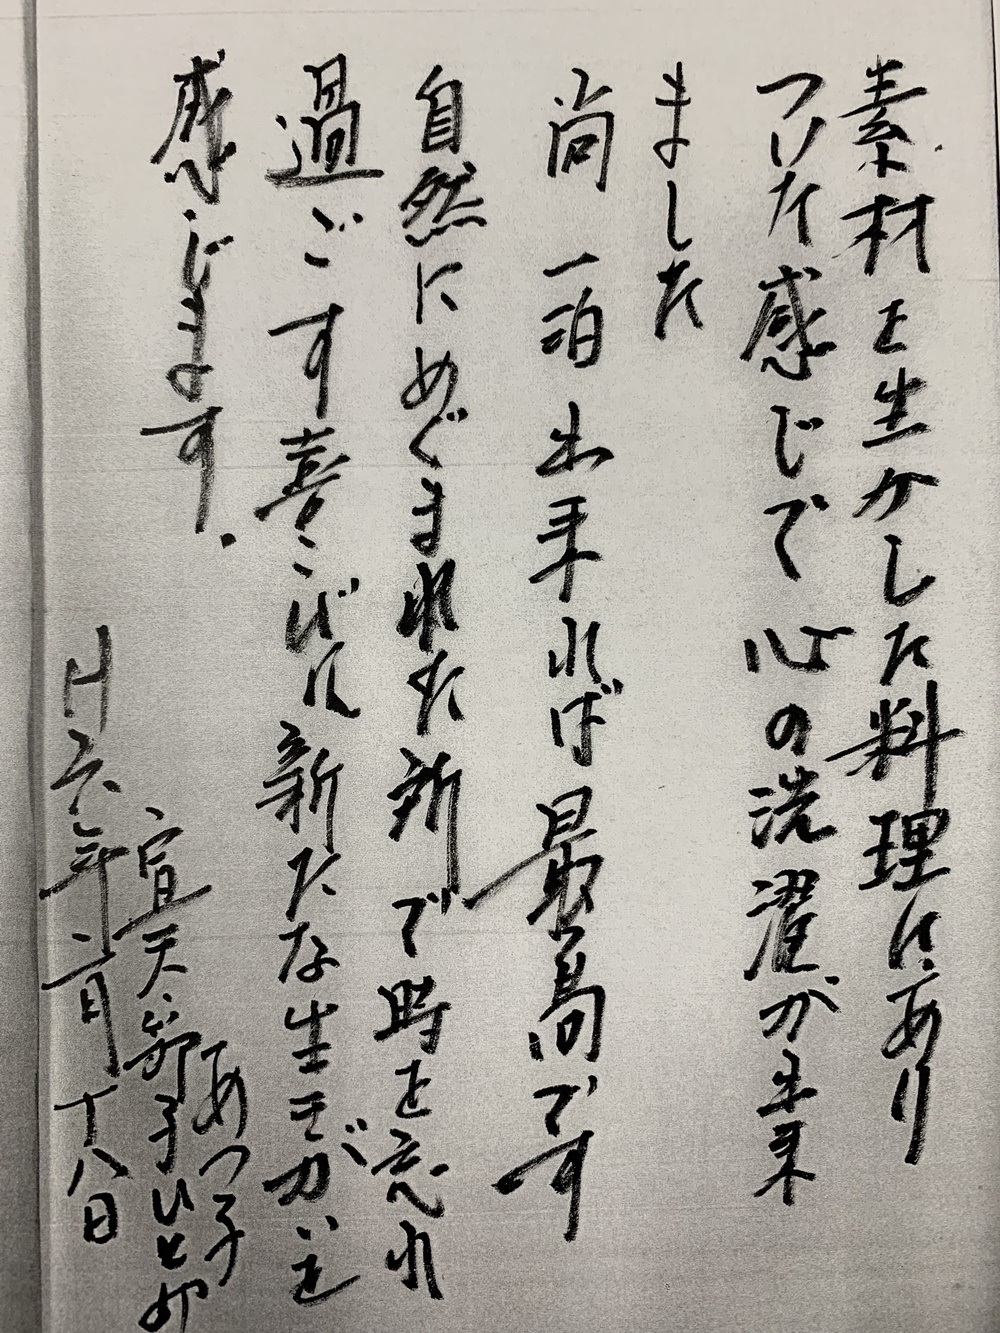 素材を生かした料理にあり
つけた感じで心の洗濯が出来
ました
尚一泊出来れば最高です
自然にめぐまれた所で時を忘れ
過ごす喜こびに新たな生きがいを
感じます.
あつ子
宜天 節子 ひとみ
H六年二月十八日